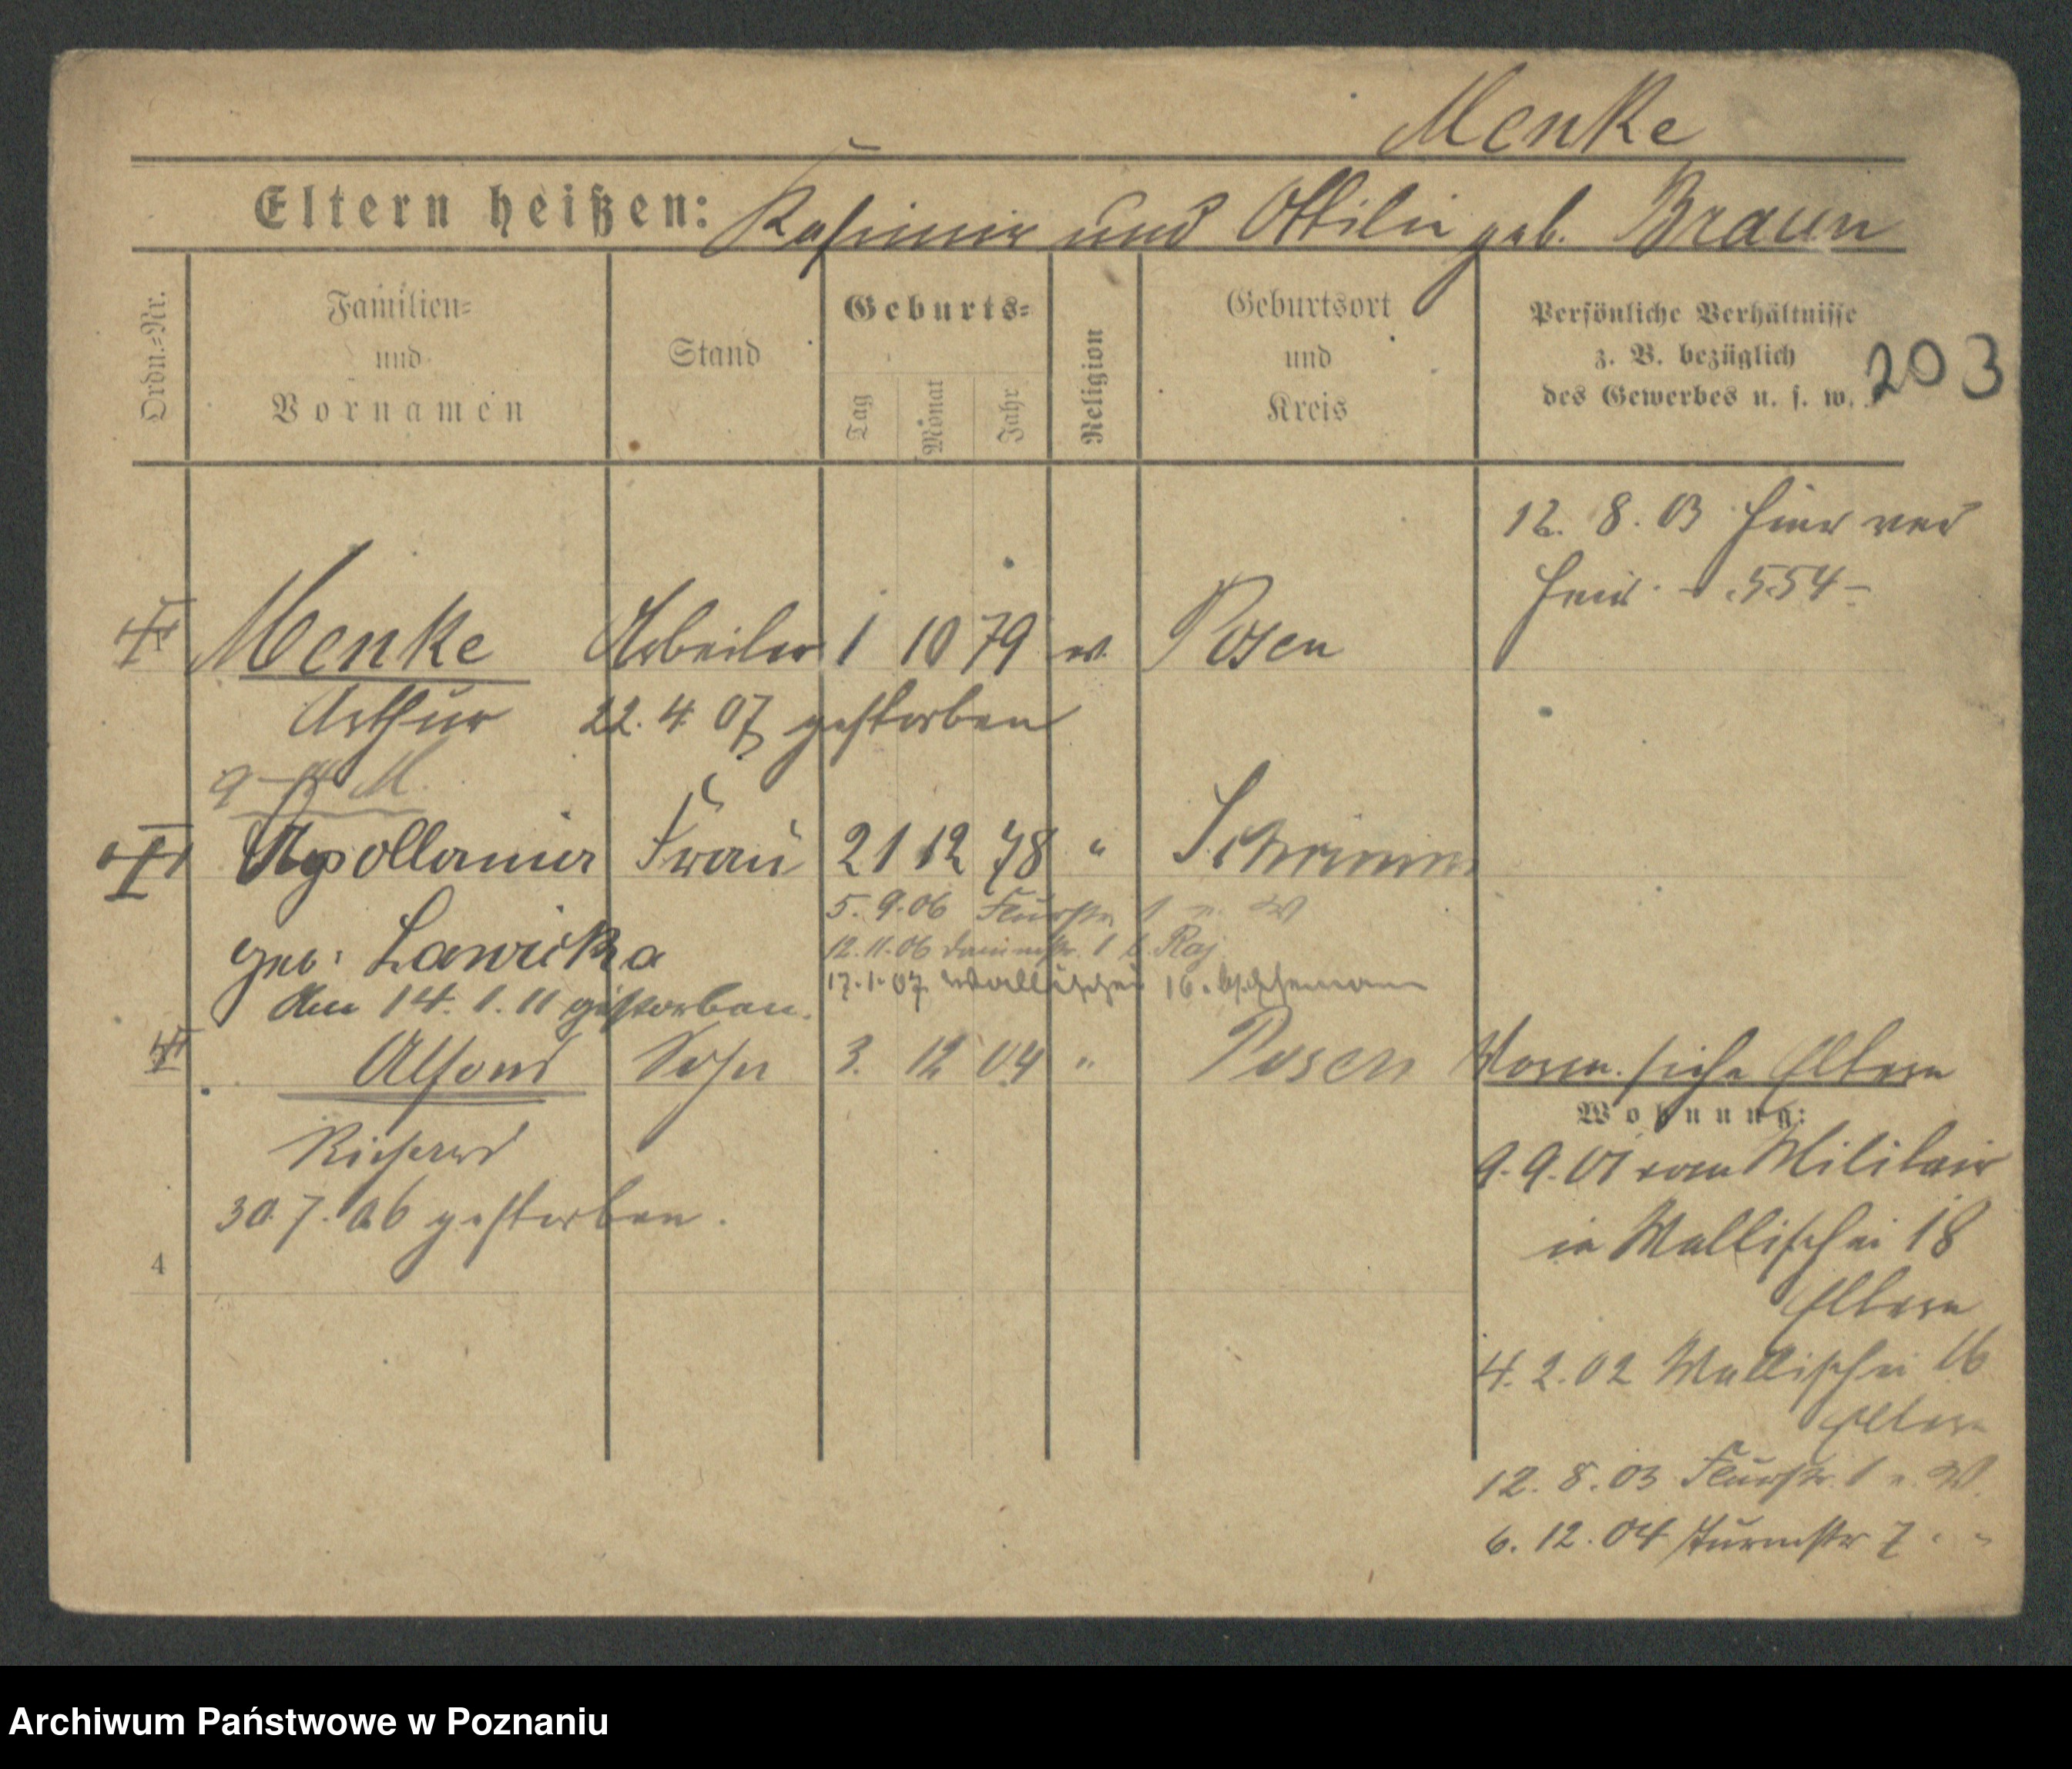 Menke
Eltern heißen: Kasimir und Ottilie geb. Braun
Ordn.-Nr.
Familien-
und
Vornamen
Stand
Geburts-
Tag
Monat
Jahr
Religion
Geburtsort
und
Kreis
Persönliche Verhältnisse
z. B. bezüglich
des Gewerbes u. s. w.
203
12. 8. 03 hier ver
heir. 554
Menke Arbeiter 1 10 79 Posen
Arthur 22. 4. 07 gestorben
Apollonia Frau 21 12 78 " Schrimm
5. 9. 06 Flurstr. 1 W
geb. Lawicka
12. 11. 06 Dammstr. 1 b. Raj
17. 1. 07 Wallischei 16.
den 14. 1. 11 gestorben.
Alfons Sohn 3. 12 04 " Posen
Vorm. siehe Eltern
Richard
30. 7. 06 gestorben.
4
Wohnung:
9. 9. 01 vom Militair
in Wallischei 18
Eltern
4. 2. 02 Wallischei 16
Eltern
12. 8. 03 Flurstr. 1 W.
6. 12. 04 Turmstr 7 " "
Archiwum Państwowe w Poznaniu